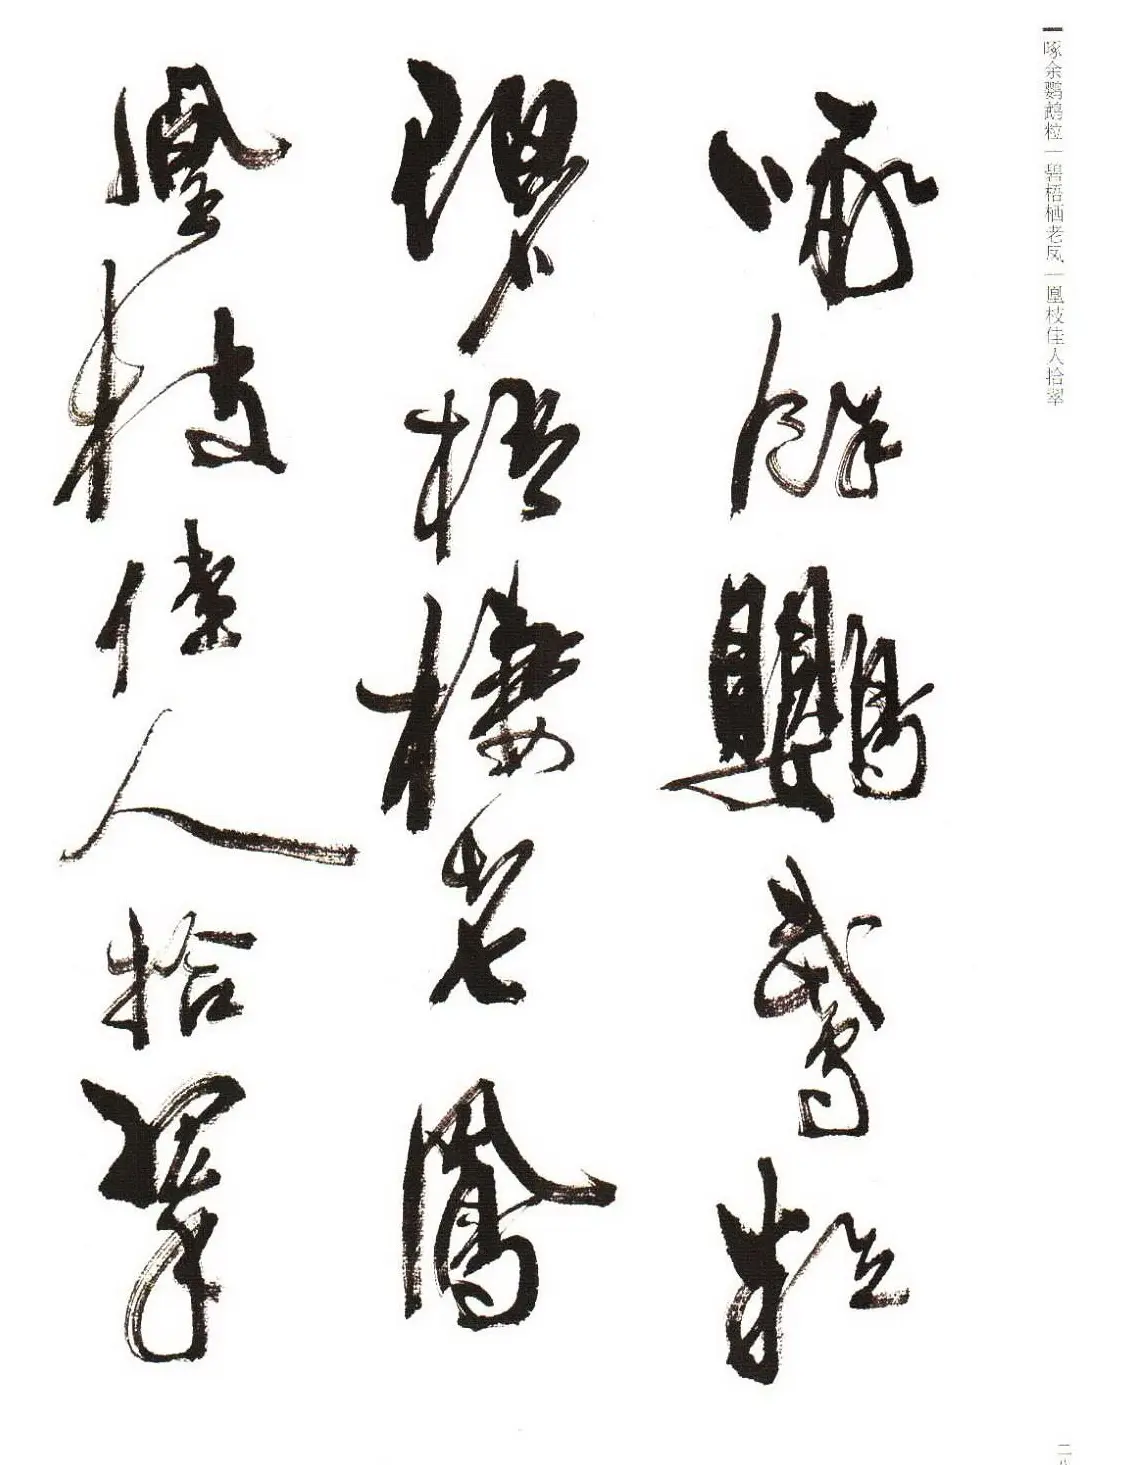 啄余鹦鹉粒｜碧梧栖老凤｜凰枝佳人拾翠
啄餘鸚鵡粒
碧梧棲老鳳
凰枝佳人拾翠